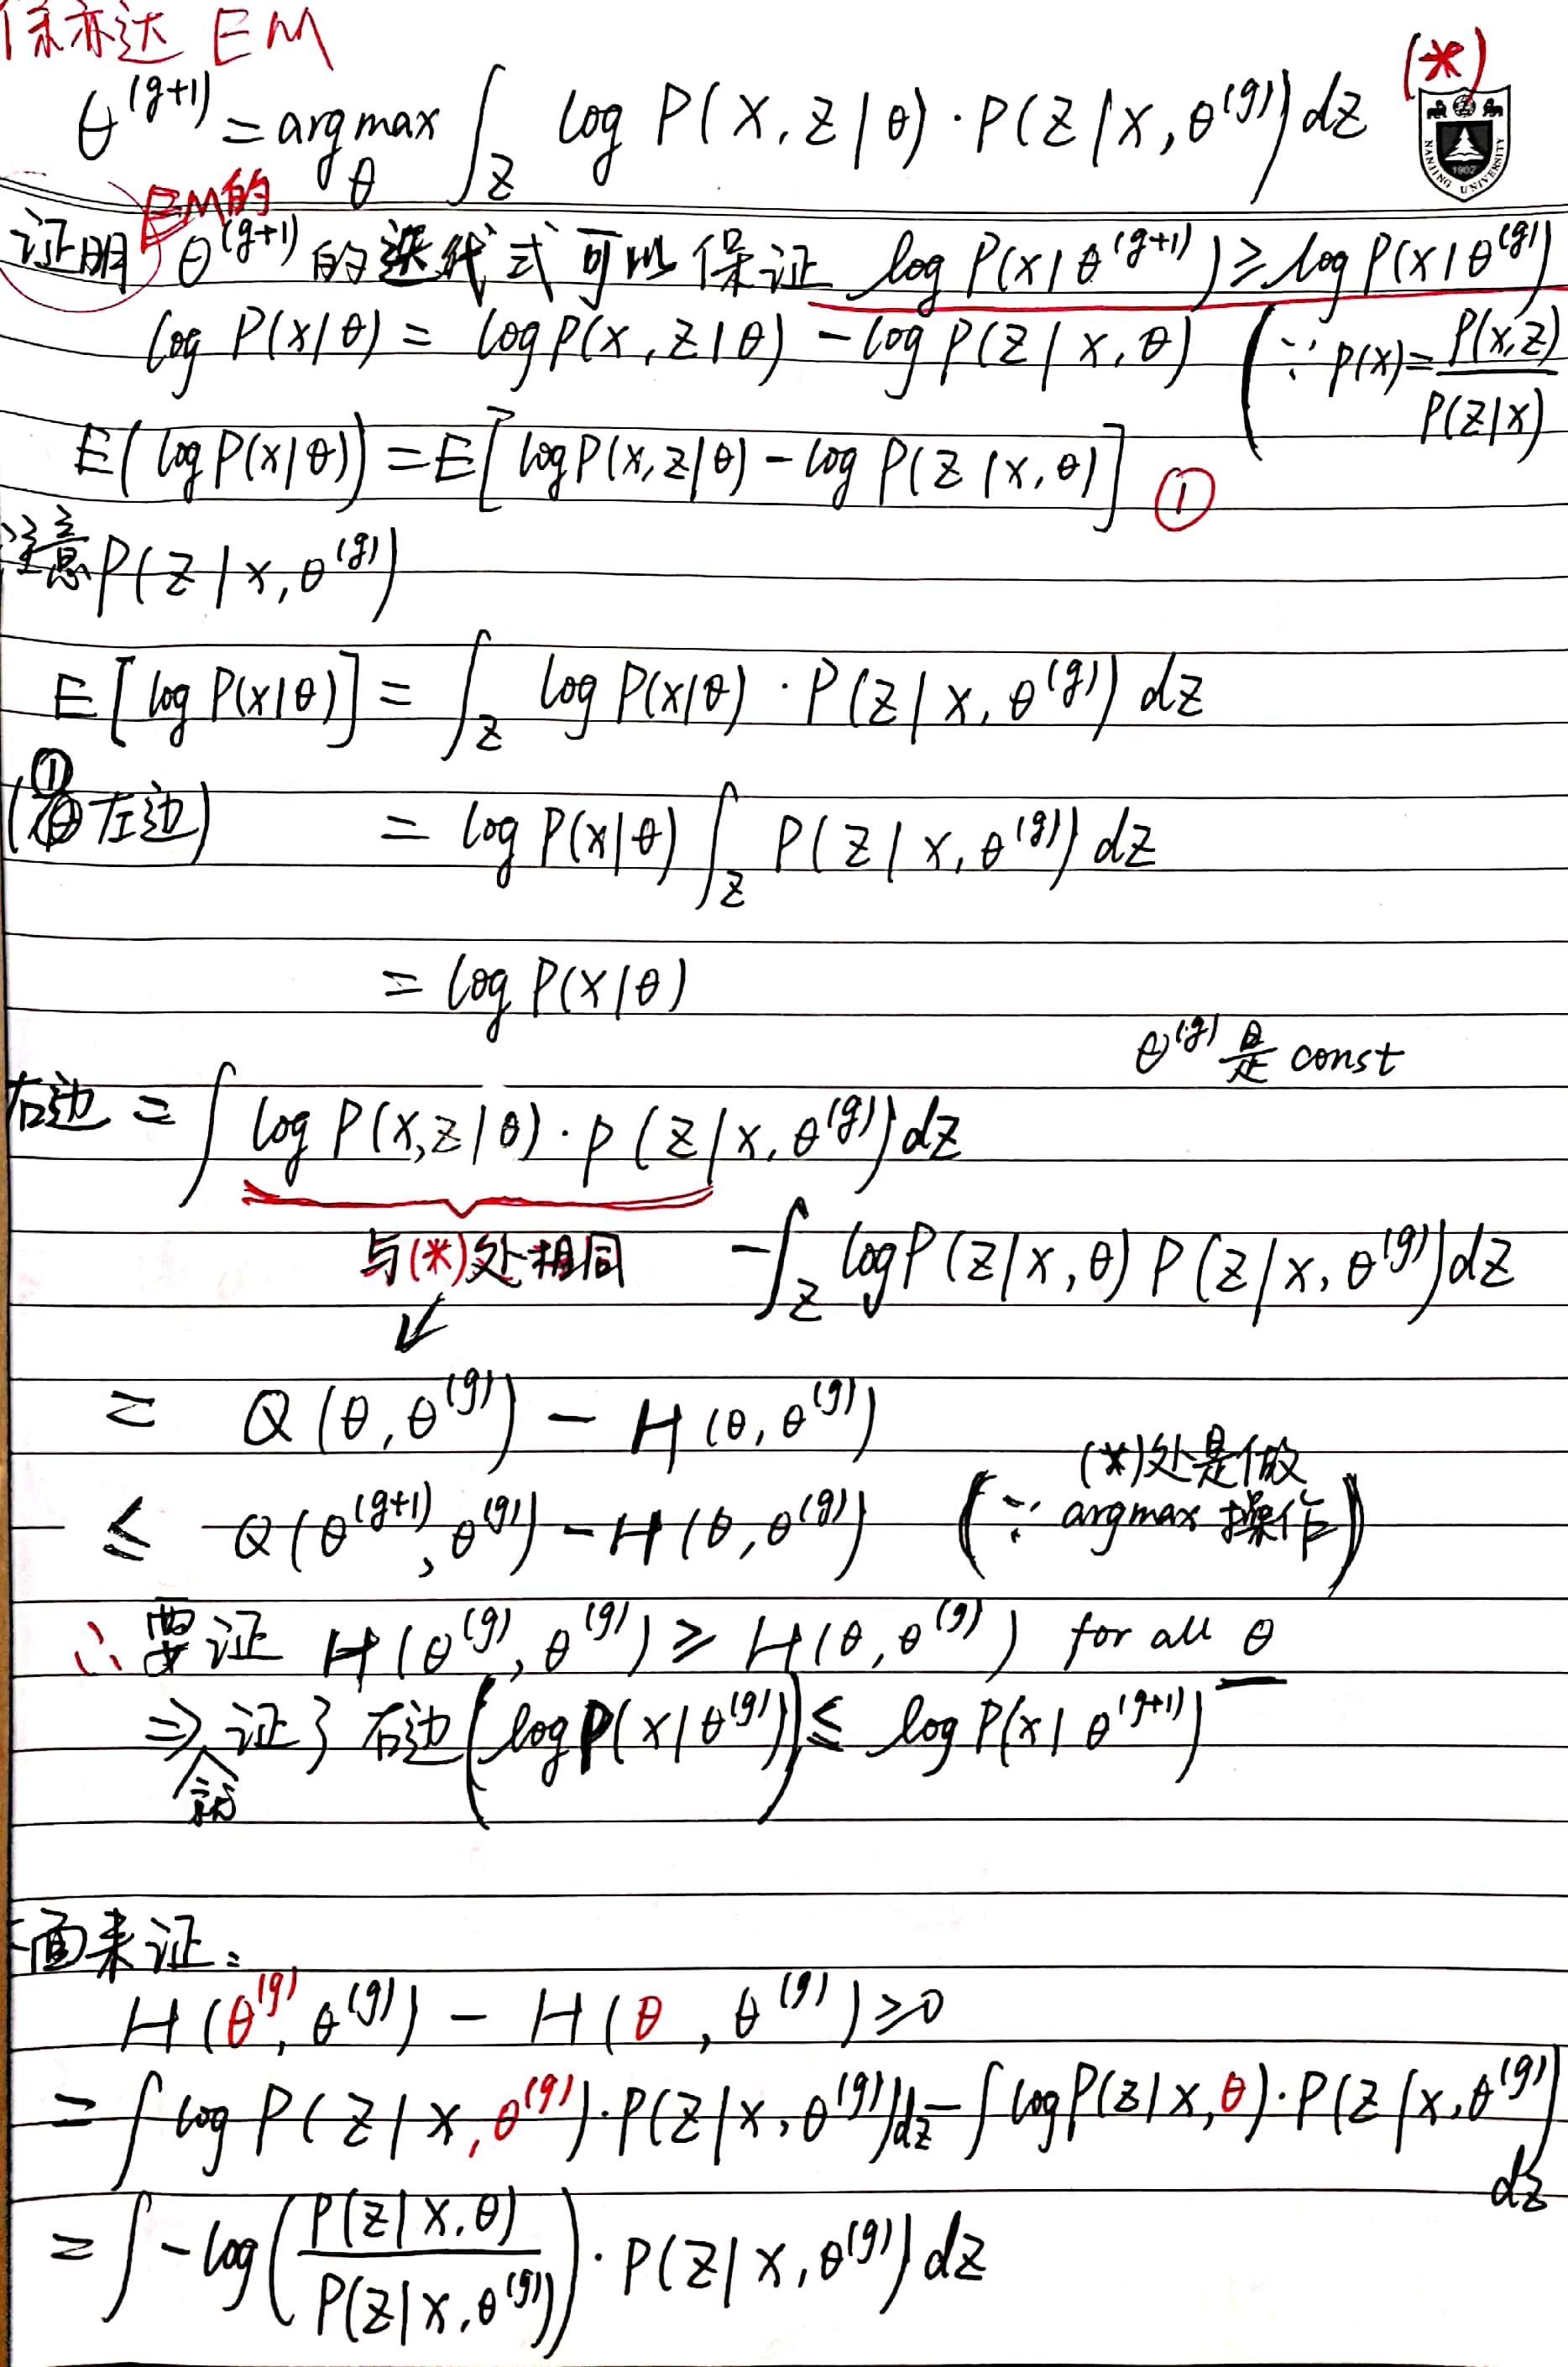 徐亦达 EM
(*)
θ^(g+1) = argmax_θ ∫_Z log P(X,Z|θ)·P(Z|X,θ^(g)) dz
NANJING UNIVERSITY
1902
EM的
证明 θ^(g+1) 的迭代式可以保证 log P(X|θ^(g+1)) ≥ log P(X|θ^(g))
log P(X|θ) = log P(X,Z|θ) - log P(Z|X,θ) (∵ P(X) = P(X,Z) / P(Z|X)
E(log P(X|θ)) = E[log P(X,Z|θ) - log P(Z|X,θ)] ①
注意 P(Z|X,θ^(g))
E[log P(X|θ)] = ∫_Z log P(X|θ)·P(Z|X,θ^(g)) dz
(① 左边) = log P(X|θ) ∫_Z P(Z|X,θ^(g)) dz
= log P(X|θ)
θ^(g) 是 const
右边 = ∫ log P(X,Z|θ)·P(Z|X,θ^(g)) dz
与(*)处相同 - ∫_Z log P(Z|X,θ) P(Z|X,θ^(g)) dz
= Q(θ,θ^(g)) - H(θ,θ^(g))
≤ Q(θ^(g+1),θ^(g)) - H(θ,θ^(g)) (∵ (*)处是做 argmax 操作)
∴ 要证 H(θ^(g),θ^(g)) ≥ H(θ,θ^(g)) for all θ
⇒ 就证了右边(log P(X|θ^(g))) ≤ log P(X|θ^(g+1))
下面来证:
H(θ^(g),θ^(g)) - H(θ,θ^(g)) ≥ 0
= ∫ log P(Z|X,θ^(g))·P(Z|X,θ^(g)) dz - ∫ log P(Z|X,θ)·P(Z|X,θ^(g)) dz
= ∫ -log(P(Z|X,θ) / P(Z|X,θ^(g)))·P(Z|X,θ^(g)) dz